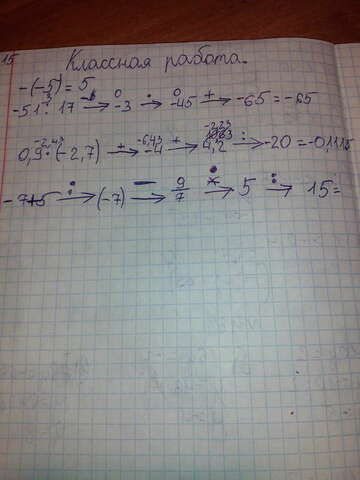 15
Классная работа.
-(-5) = 5
-51 : 17 → -3 → -45 + → -65 = -65
0,9 · (-2,7) + → -4 + → 4,2 : → -20 = -0,1115
-945 : → (-7) − → 9/7 → 5 : → 15 =